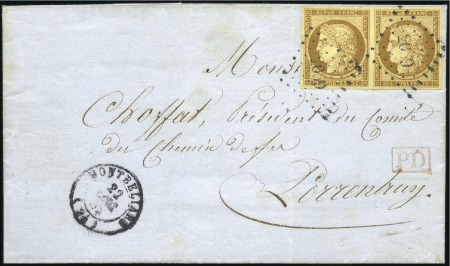 REPUB. FRANC. REPUB. FRANC.
Monsi
Choffat, Président du Comité
du Chemin de fer
PD
MONTBELIARD
22
Porrentruy